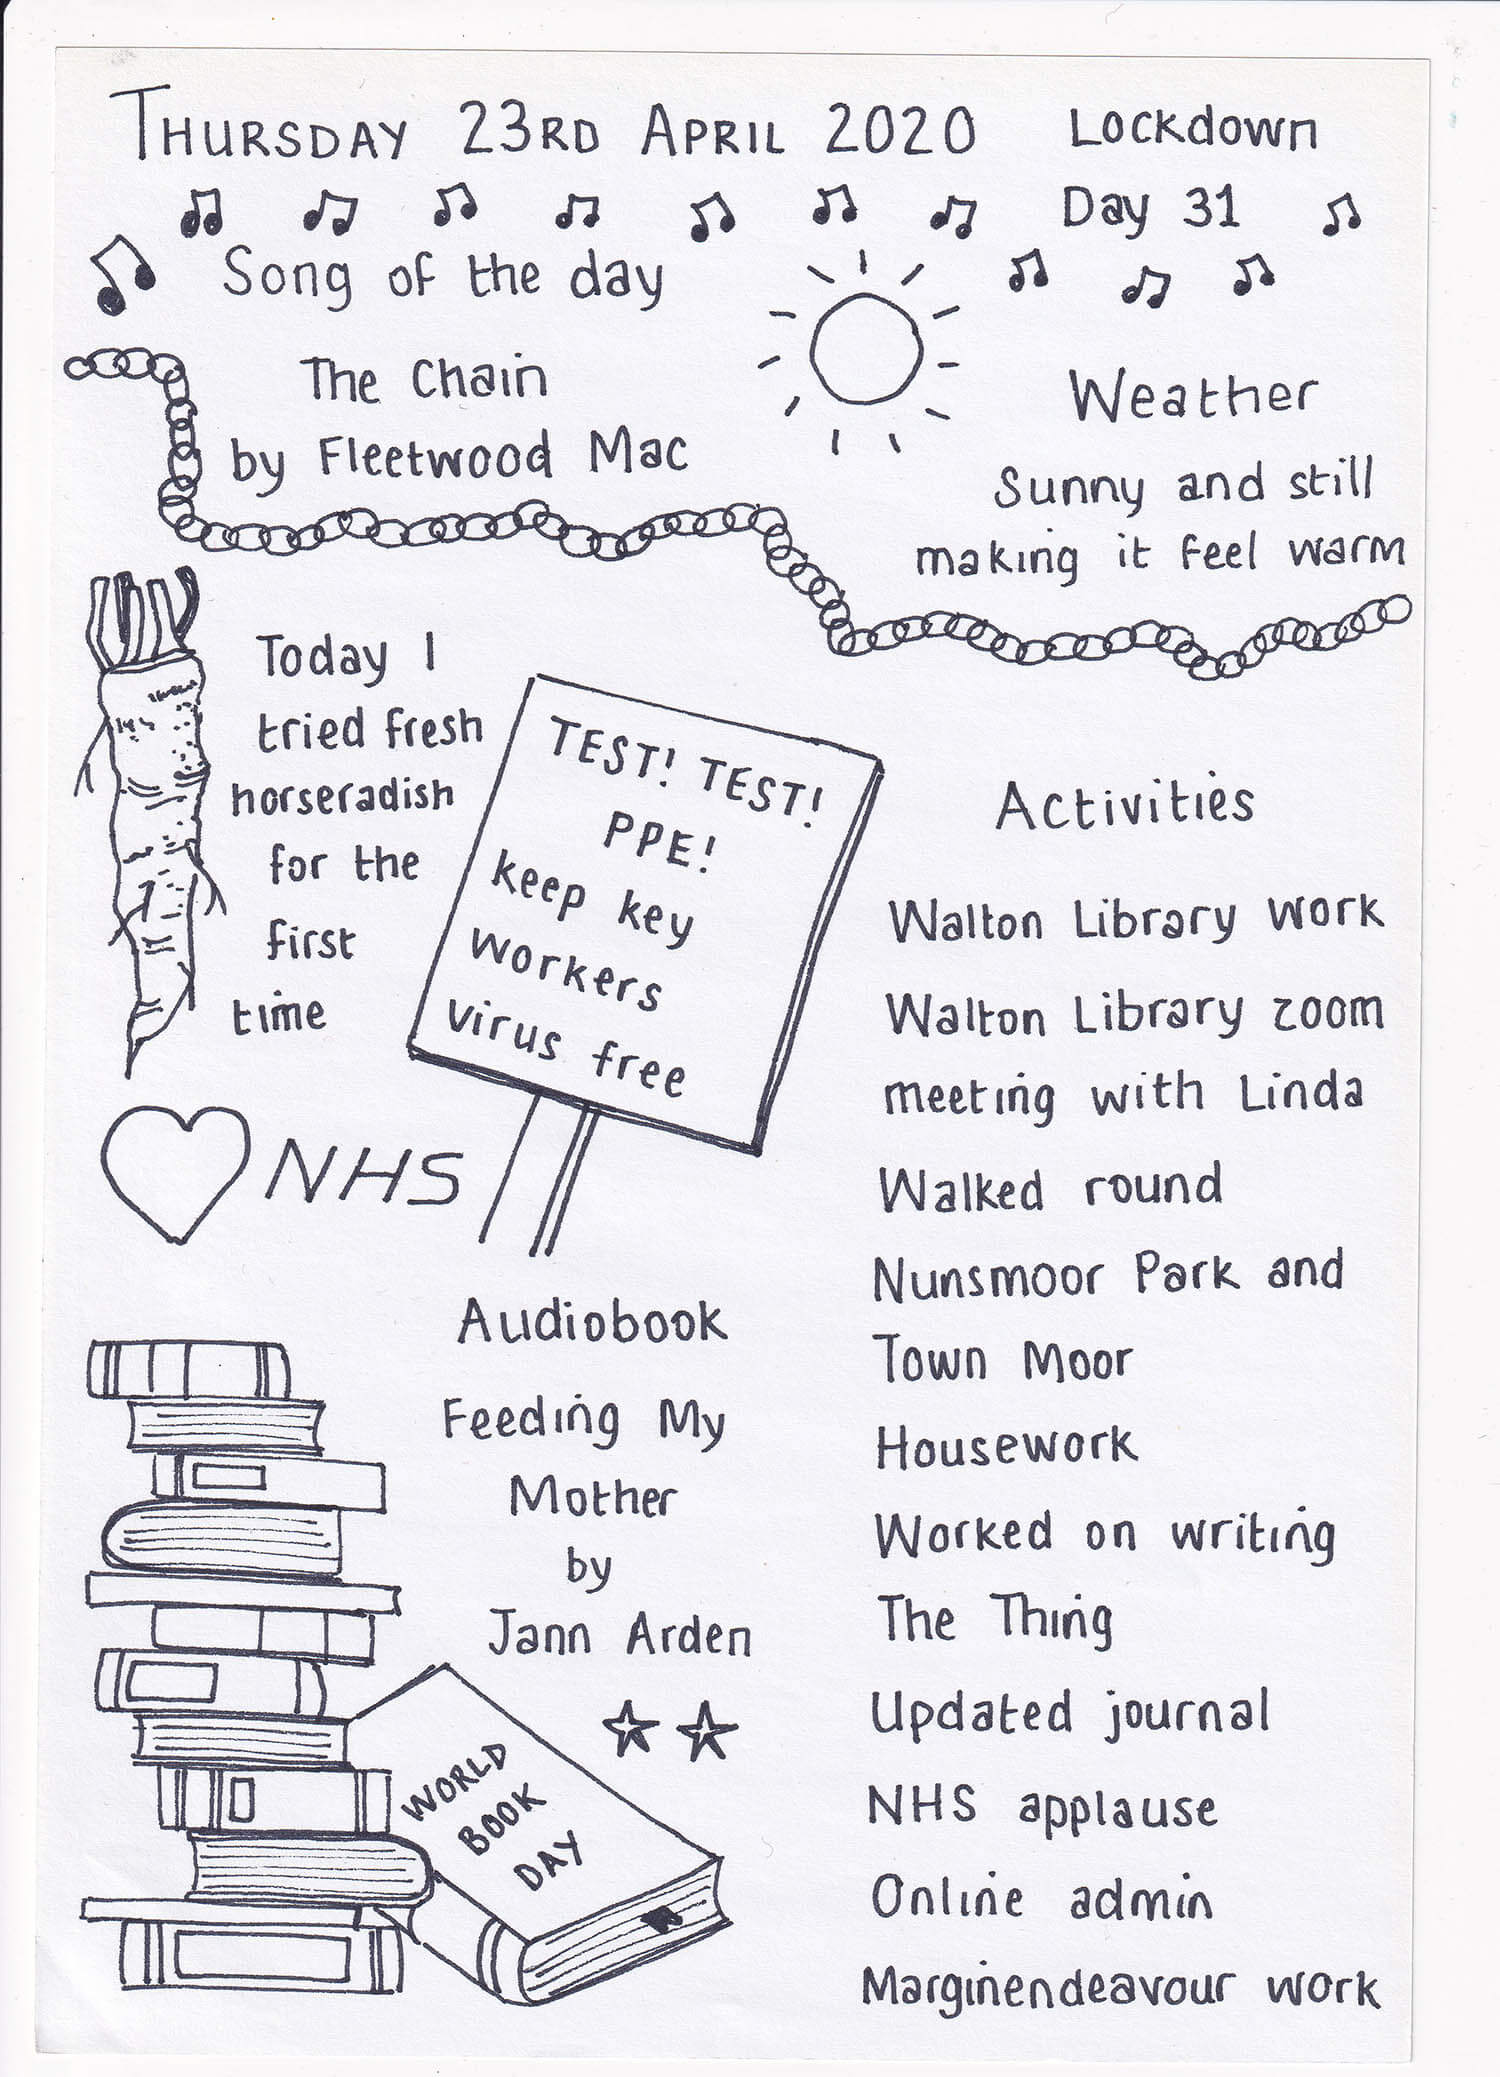 THURSDAY 23RD APRIL 2020
Lockdown
Day 31
Song of the day
The Chain
by Fleetwood Mac
Weather
Sunny and still
making it feel warm
Today I
tried fresh
horseradish
for the
first
time
TEST! TEST!
PPE!
keep key
workers
virus free
NHS
Activities
Walton Library work
Walton Library zoom
meeting with Linda
Walked round
Nunsmoor Park and
Town Moor
Housework
Worked on writing
The Thing
Updated journal
NHS applause
Online admin
Marginendeavour work
Audiobook
Feeding My
Mother
by
Jann Arden
WORLD
BOOK
DAY